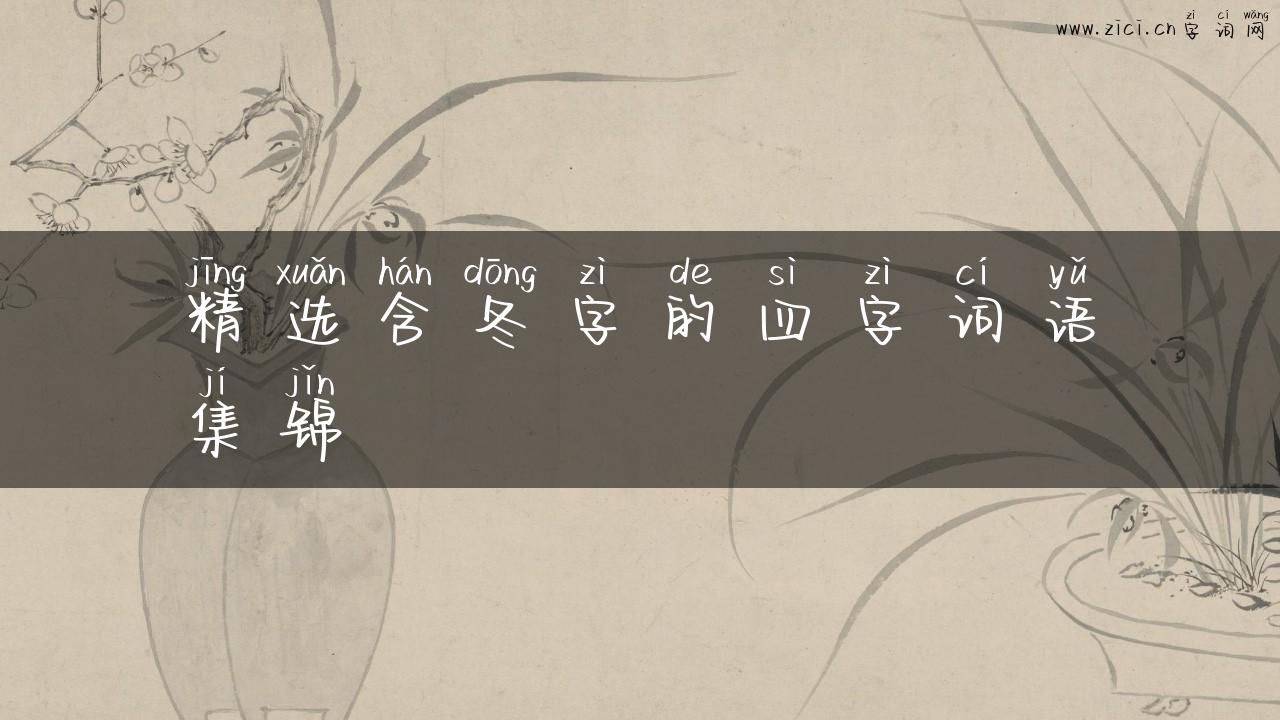 zì cí wǎng
www.zici.cn 字词网
jīng xuǎn hán dōng zì de sì zì cí yǔ
精选含冬字的四字词语
jí jǐn
集锦